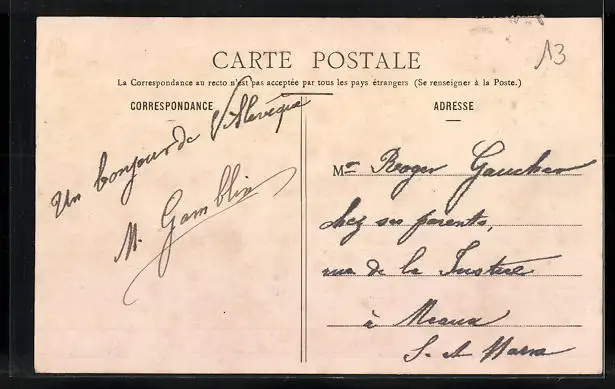 13
CARTE POSTALE
La Correspondance au recto n'est pas acceptée par tous les pays étrangers (Se renseigner à la Poste.)
CORRESPONDANCE
Un bonjour de Villevêque
M. Gamblin
ADRESSE
Mr Roger Gaucher
chez ses parents,
rue de la Justice
à Meaux
S. et Marne